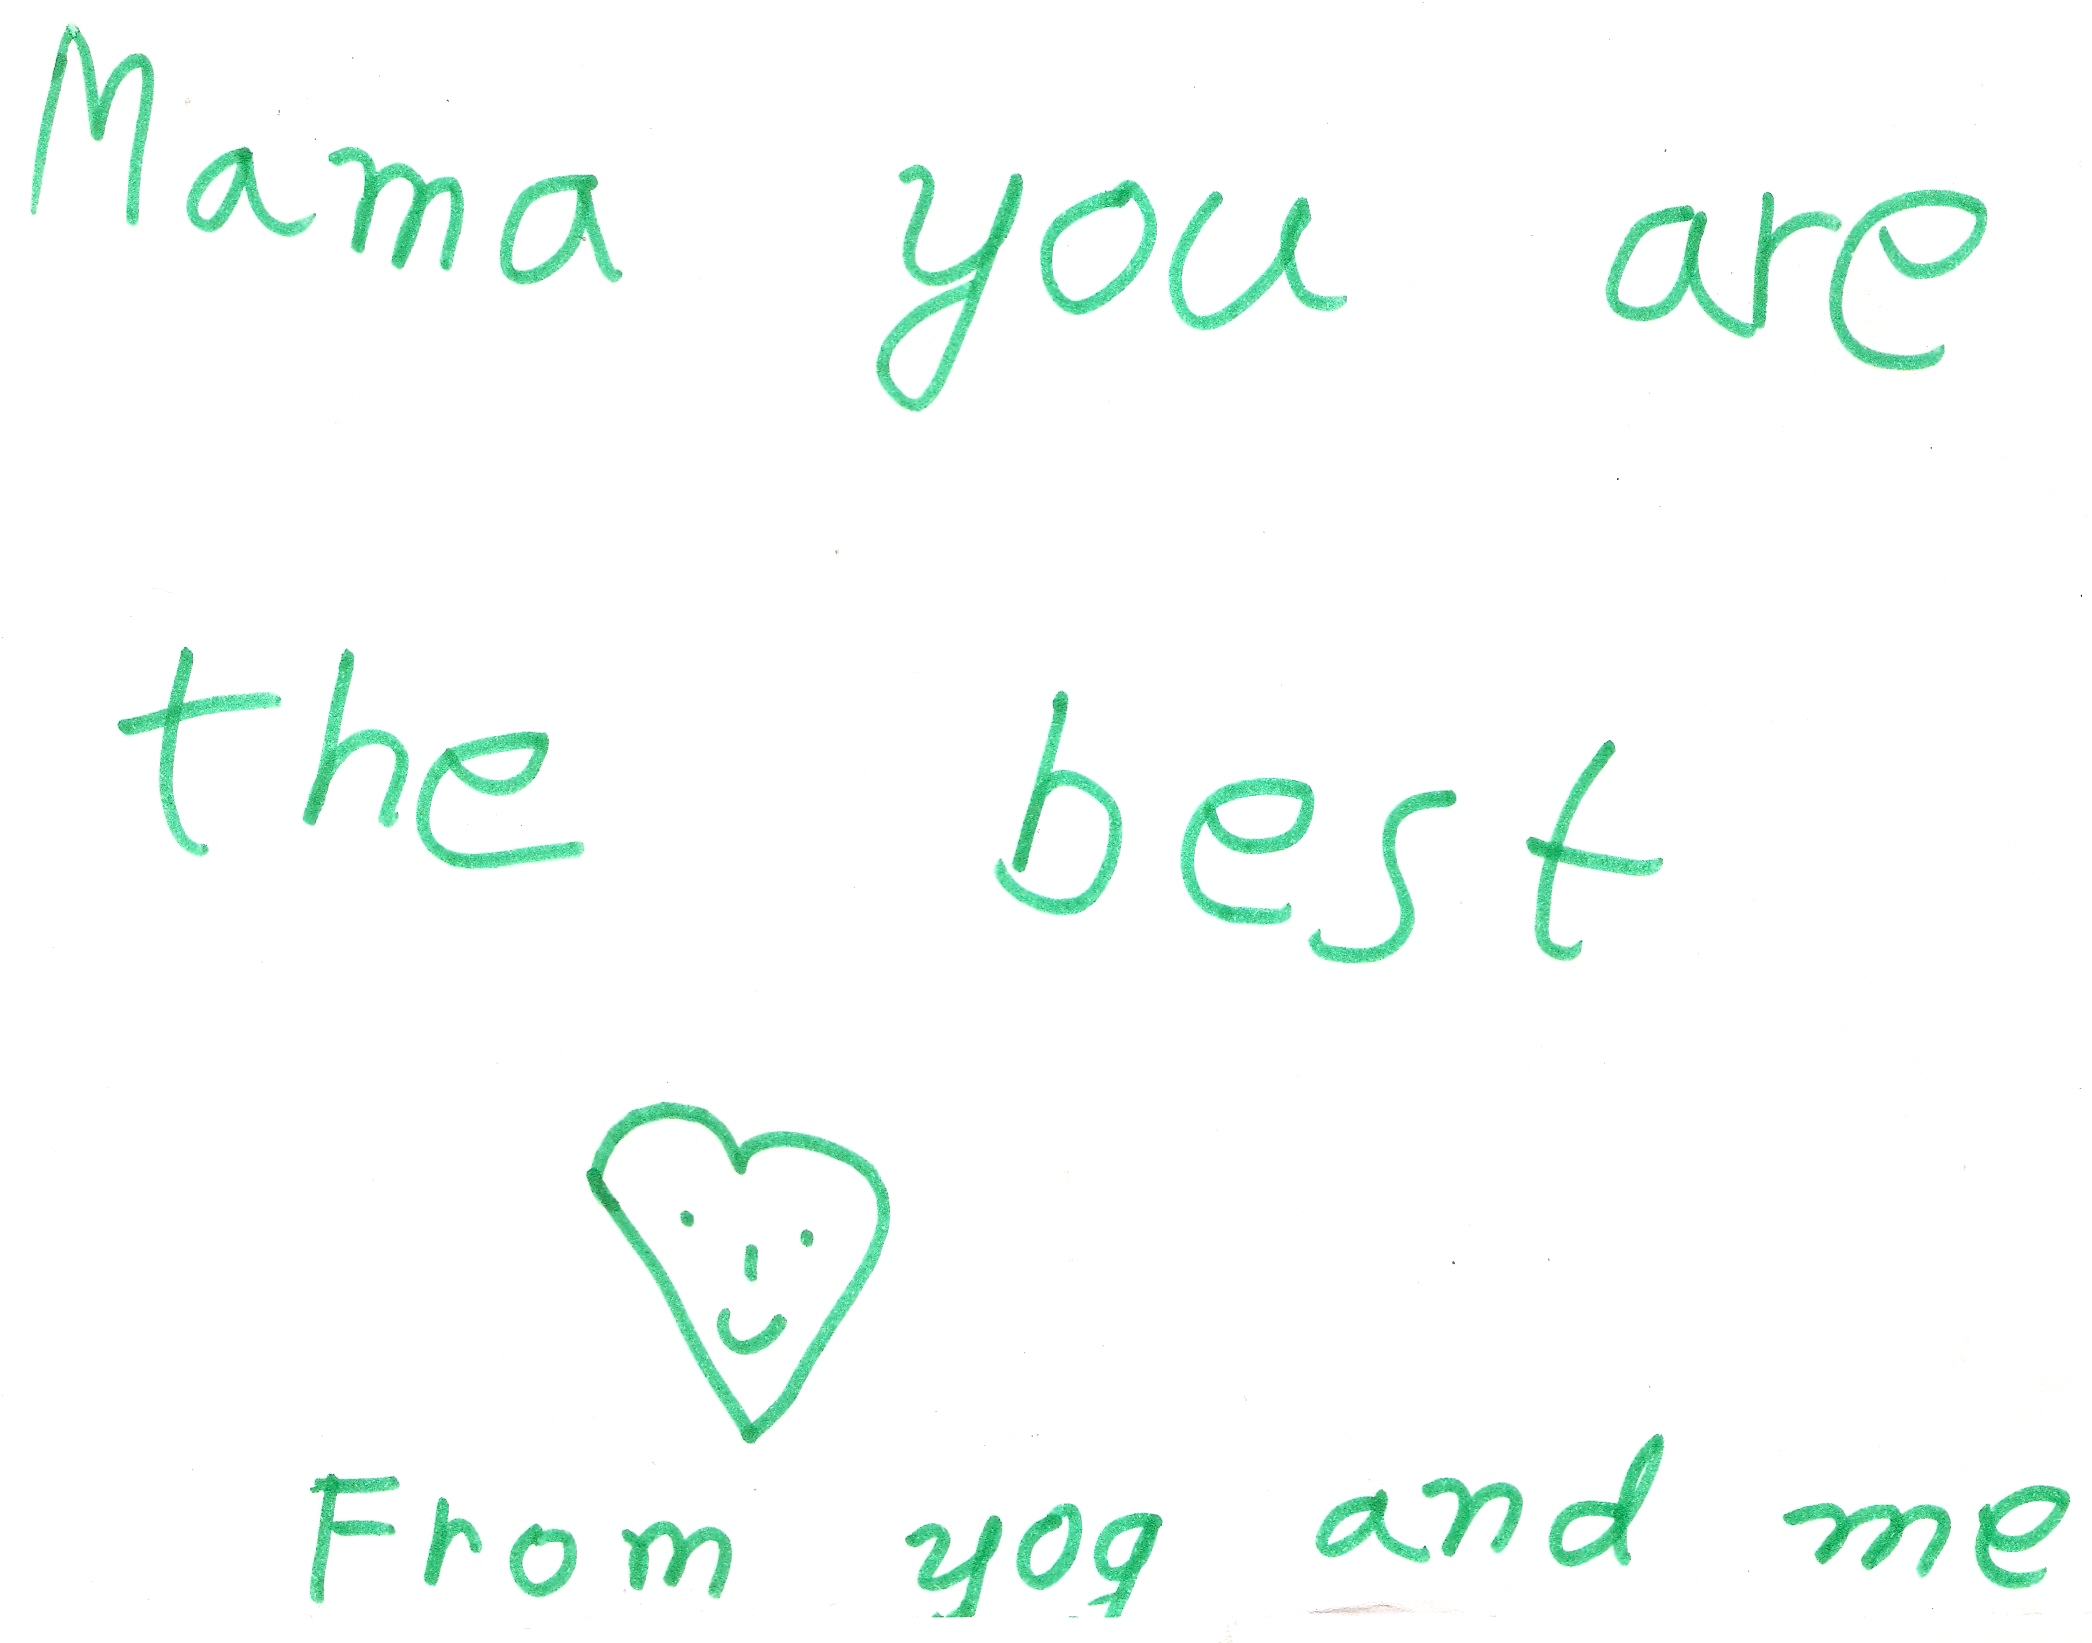 Mama you are
the best
From yog and me